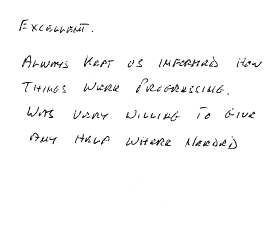 EXCELLENT.
ALWAYS KEPT US INFORMED HOW
THINGS WERE PROGRESSING.
WAS VERY WILLING TO GIVE
ANY HELP WHERE NEEDED